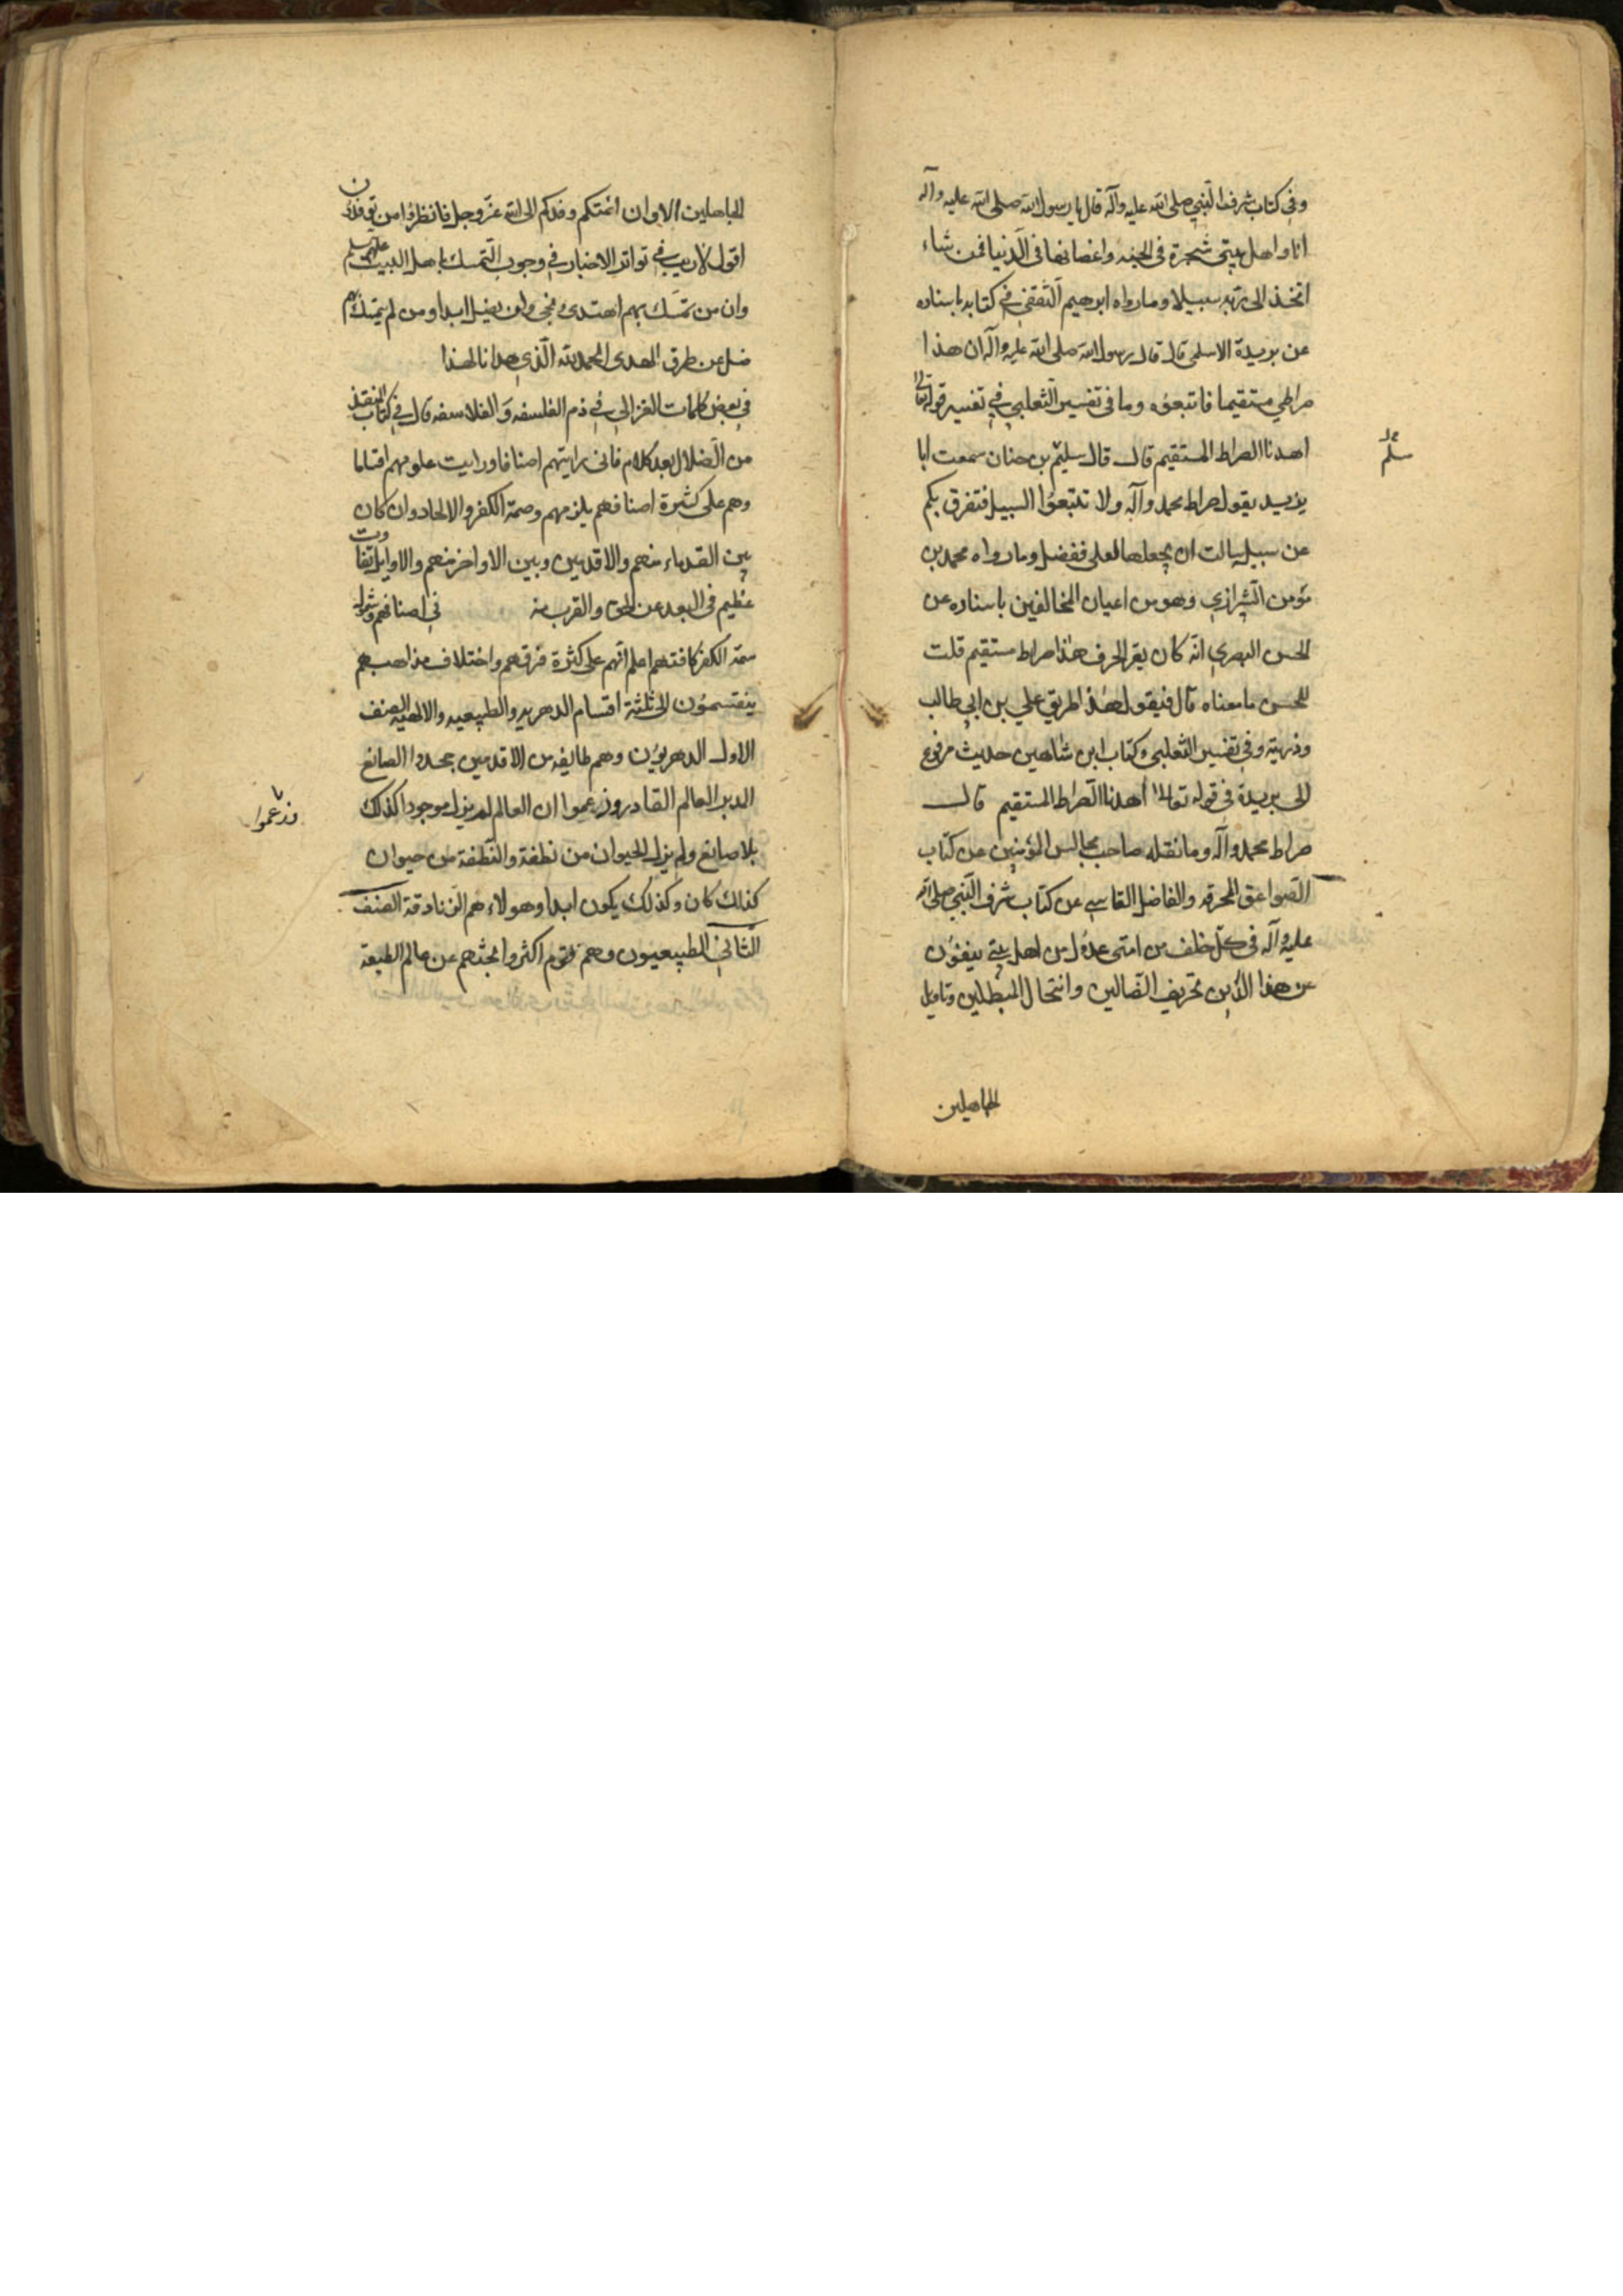 وفي كتاب شرف النبي صلى الله عليه وآله قال يا رسول الله صلى الله عليه وآله
انا واهل بيتي شجرة في الجنه واغصانها في الدنيا فمن شاء
اتخذ الى ربه سبيلا وما رواه ابرهيم الثقفي في كتابه باسناده
عن بريدة الاسلمي قال قال رسول الله صلى الله عليه وآله ان هذا
صراطي مستقيما فاتبعوه وما في تفسير الثعلبي في تفسير قوله تعالى
اهدنا الصراط المستقيم قال قال سليم بن حنان سمعت ابا
مسلم
يزيد يقول صراط محمد وآله ولا تتبعوا السبيل فتفرق بكم
عن سبيله سالت ان يجعلها لعلي ففضل وما رواه محمد بن
مومن الشيرازي وهو من اعيان المخالفين باسناده عن
الحسن البصري انه كان يقرا الحرف هذا صراط مستقيم قلت
للحسن ما معناه قال فيقول هذا طريق علي بن ابي طالب
وذريته وفي تفسير الثعلبي وكتاب ابن شاهين حديث مرفوع
الى بريدة في قوله تعالى اهدنا الصراط المستقيم قال
صراط محمد وآله وما نقله صاحب مجالس المؤمنين عن كتاب
الصواعق المحرقه والفاضل القاسي عن كتاب شرف النبي صلى الله
عليه وآله في كل خلف من امتي عدول من اهل بيتي ينفون
عن هذا الدين تحريف الضالين وانتحال المبطلين وتاويل
الجاهلين
الجاهلين الا وان ائمتكم وفدكم الى الله عز وجل فانظروا من توفدون
اقول لا ريب في تواتر الاخبار في وجوب التمسك باهل البيت عليهم
وان من تمسك بهم اهتدى ونجى ولن يضل ابدا ومن لم يتمسك بهم
ضل عن طرق الهدى الحمد لله الذي هدانا لهذا
في بعض كلمات الغزالي في ذم الفلسفه والفلاسفه قال في كتاب المنقذ
من الضلال بعد كلام فاني رايتهم اصنافا ورايت علومهم اقساما
وهم على كثرة اصنافهم يلزمهم وصمة الكفر والالحاد وان كان
بين القدماء منهم والاقدمين وبين الاواخر منهم والاوايل تفاوت
عظيم في البعد عن الحق والقرب منه في اصنافهم وشمول
سمة الكفر كافتهم اعلم انهم على كثرة فرقهم واختلاف مذاهبهم
ينقسمون الى ثلثة اقسام الدهريه والطبيعيه والالهيه الصنف
الاول الدهريون وهم طايفه من الاقدمين جحدوا الصانع
المدبر العالم القادر وزعموا ان العالم لم يزل موجودا كذلك
وزعموا
بلا صانع ولم يزل الحيوان من نطفة والنطفة من حيوان
كذلك كان وكذلك يكون ابدا وهولاء هم الزنادقة الصنف
الثاني الطبيعيون وهم قوم اكثروا بحثهم عن عالم الطبيعة